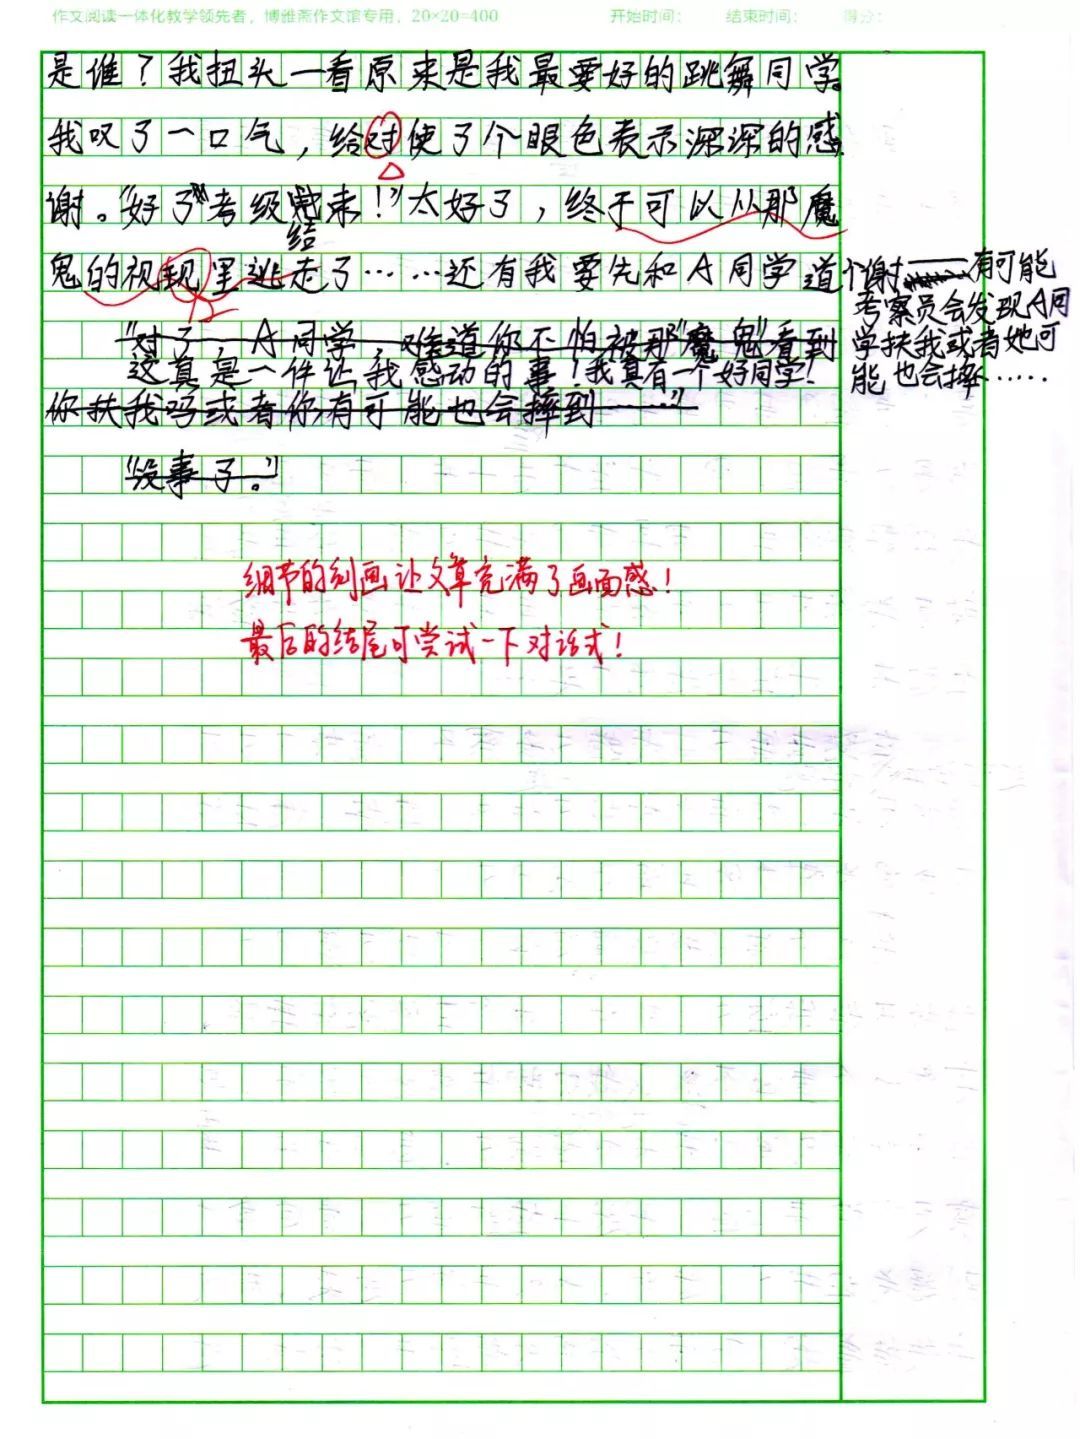 作文阅读一体化教学领先者，博雅斋作文馆专用，20×20=400 开始时间： 结束时间： 得分：
是谁？我扭头一看原来是我最要好的跳舞同学。
我叹了一口气，给对使了个眼色表示深深的感
谢。“好了”考级结束！”太好了，终于可以从那魔
鬼的视线里逃走了……还有我要先和A同学道个谢——有可能
考察员会发现A同
学扶我或者她可
能也会摔……
“对了，A同学，难道你不怕被那“魔鬼”看到
这真是一件让我感动的事！我真有一个好同学！
你扶我吗或者你有可能也会摔到——”
“没事了。”
细节的刻画让文章充满了画面感！
最后的结尾可尝试一下对话式！